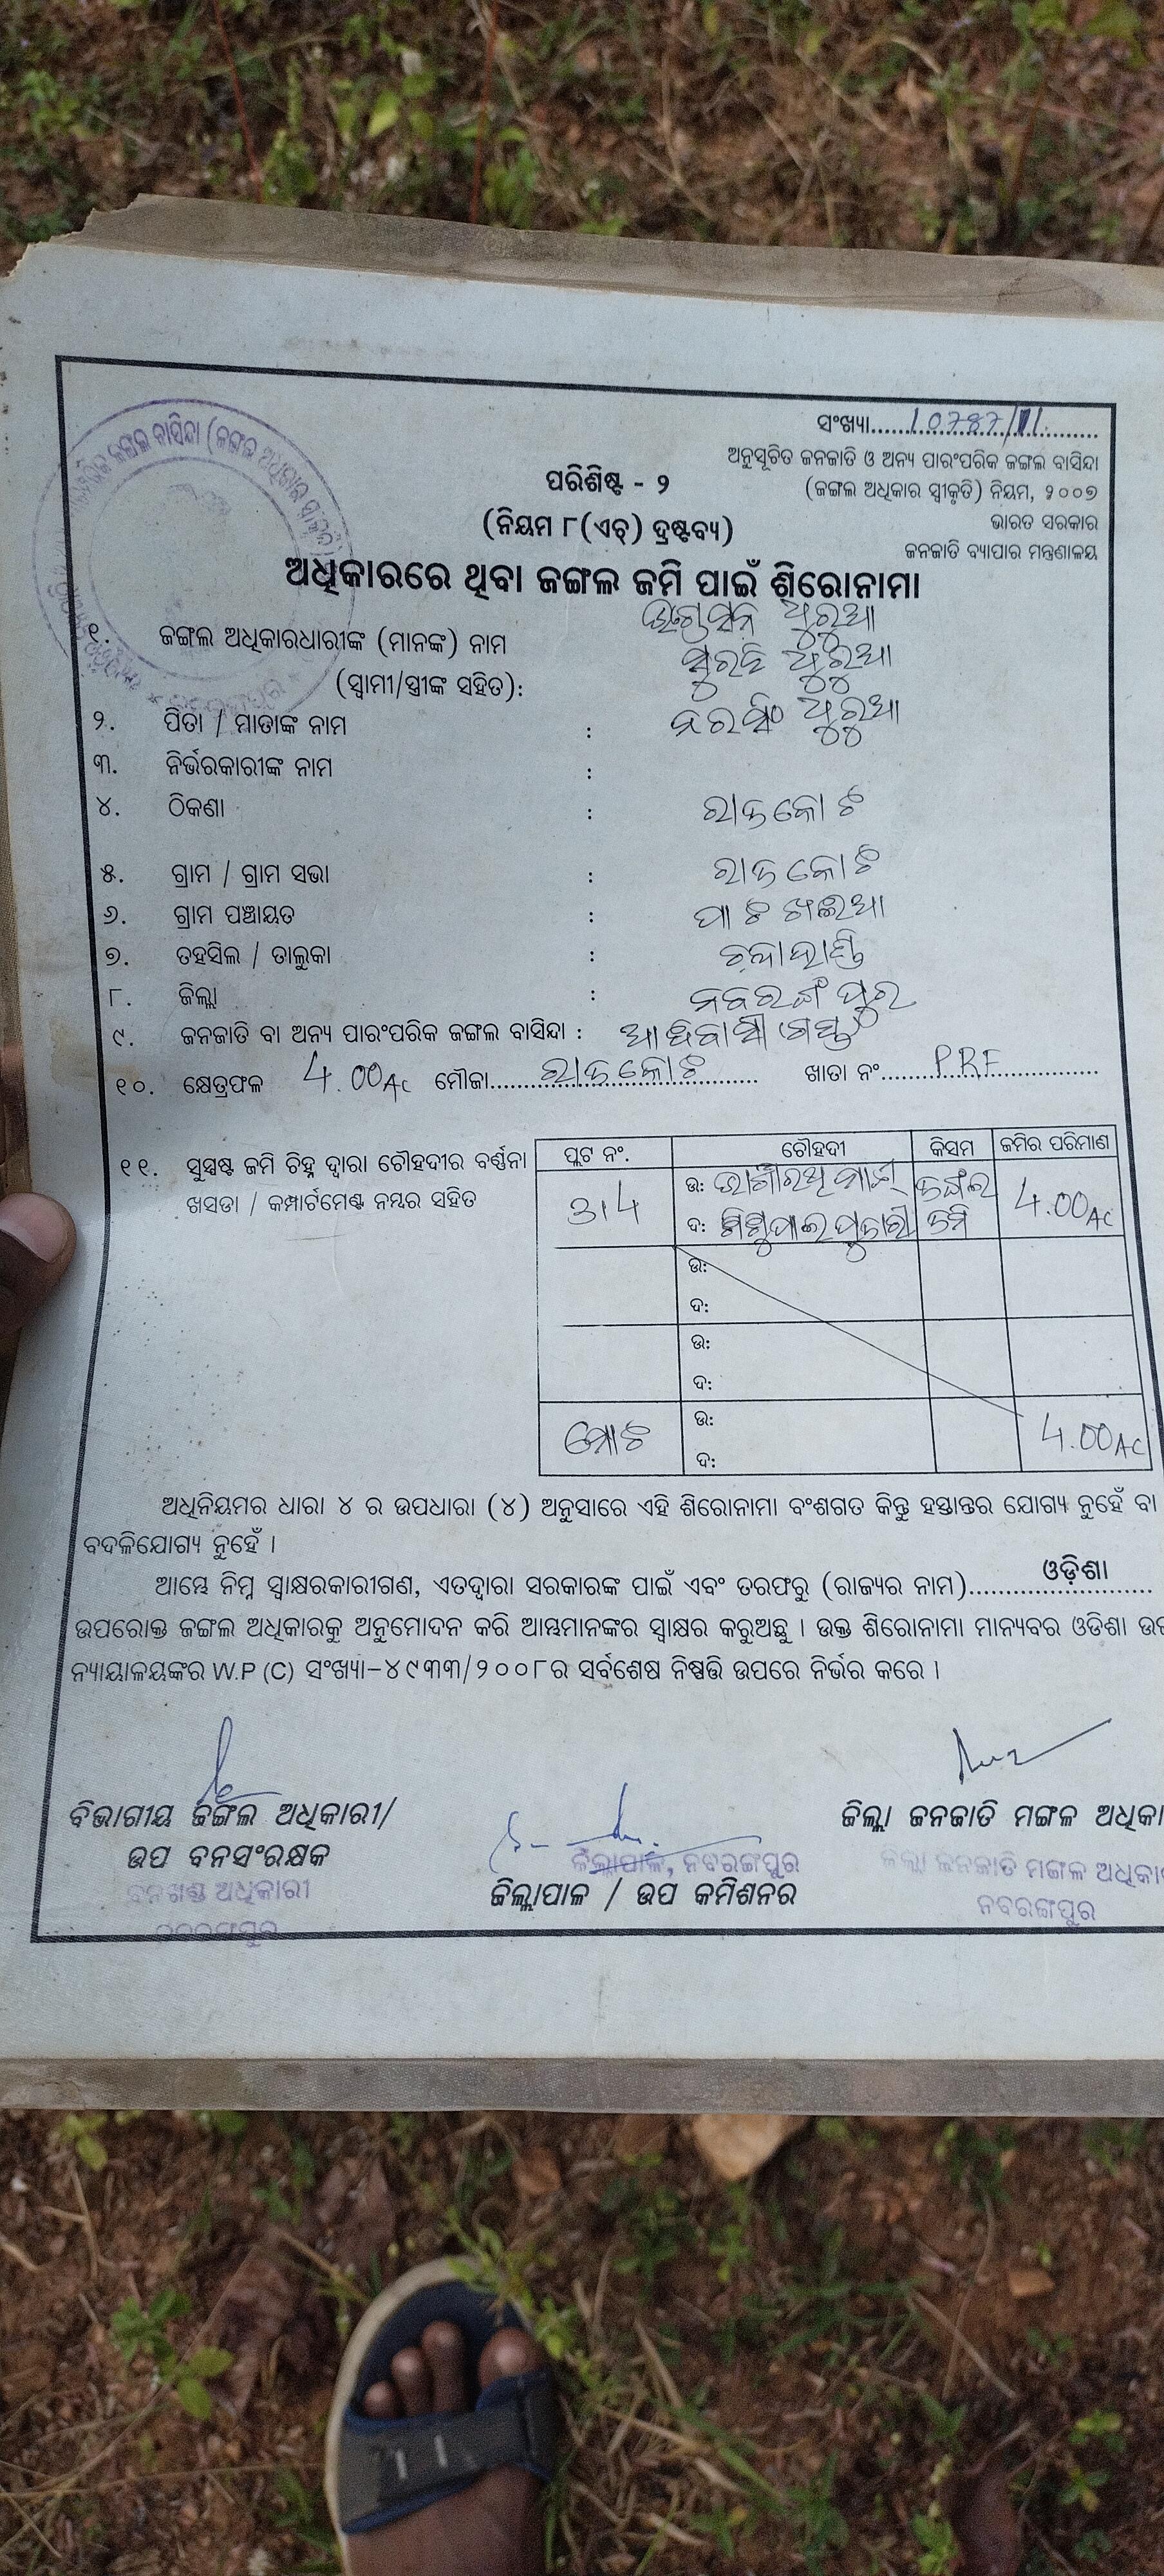 ସଂଖ୍ୟା..... 10787/
ଅନୁସୂଚିତ ଜନଜାତି ଓ ଅନ୍ୟ ପାରଂପରିକ ଜଙ୍ଗଲ ବାସିନ୍ଦା
(ଜଙ୍ଗଲ ଅଧିକାର ସ୍ୱୀକୃତି) ନିୟମ, ୨୦୦୭
ଭାରତ ସରକାର
ଜନଜାତି ବ୍ୟାପାର ମନ୍ତ୍ରଣାଳୟ
ପରିଶିଷ୍ଟ - ୨
(ନିୟମ ୮(ଏଚ୍) ଦ୍ରଷ୍ଟବ୍ୟ)
ଅଧିକାରରେ ଥିବା ଜଙ୍ଗଲ ଜମି ପାଇଁ ଶିରୋନାମା
୧. ଜଙ୍ଗଲ ଅଧିକାରଧାରୀଙ୍କ (ମାନଙ୍କ) ନାମ ଧୁରୁଆ
(ସ୍ୱାମୀ/ସ୍ତ୍ରୀଙ୍କ ସହିତ): ଧୁରୁଆ
୨. ପିତା / ମାତାଙ୍କ ନାମ : ନରସିଂ ଧୁରୁଆ
୩. ନିର୍ଭରକାରୀଙ୍କ ନାମ :
୪. ଠିକଣା : ରାଜକୋଟ
୫. ଗ୍ରାମ / ଗ୍ରାମ ସଭା : ରାଜକୋଟ
୬. ଗ୍ରାମ ପଞ୍ଚାୟତ : ପାଟଖଳିଆ
୭. ତହସିଲ / ତାଲୁକା : ଚନ୍ଦାହାଣ୍ଡି
୮. ଜିଲ୍ଲା : ନବରଙ୍ଗପୁର
୯. ଜନଜାତି ବା ଅନ୍ୟ ପାରଂପରିକ ଜଙ୍ଗଲ ବାସିନ୍ଦା : ଆଦିବାସୀ
୧୦. କ୍ଷେତ୍ରଫଳ 4.00Ac ମୌଜା..... ରାଜକୋଟ ..... ଖାତା ନଂ..... PRF .....
୧୧. ସୁସ୍ପଷ୍ଟ ଜମି ଚିହ୍ନ ଦ୍ୱାରା ଚୌହଦୀର ବର୍ଣ୍ଣନା
ଖସଡା / କମ୍ପାର୍ଟମେଣ୍ଟ ନମ୍ବର ସହିତ
ପ୍ଲଟ ନଂ. ଚୌହଦୀ କିସମ ଜମିର ପରିମାଣ
314 ଉ: ଭାଗୀରଥି ମାଝୀ ଜଙ୍ଗଲ 4.00Ac
ଦ: ପୁଜାରୀ ଜମି
ଉ:
ଦ:
ଉ:
ଦ:
ମୋଟ ଉ: 4.00AC
ଦ:
ଅଧିନିୟମର ଧାରା ୪ ର ଉପଧାରା (୪) ଅନୁସାରେ ଏହି ଶିରୋନାମା ବଂଶଗତ କିନ୍ତୁ ହସ୍ତାନ୍ତର ଯୋଗ୍ୟ ନୁହେଁ ବା
ବଦଳିଯୋଗ୍ୟ ନୁହେଁ ।
ଆମ୍ଭେ ନିମ୍ନ ସ୍ୱାକ୍ଷରକାରୀଗଣ, ଏତଦ୍ୱାରା ସରକାରଙ୍କ ପାଇଁ ଏବଂ ତରଫରୁ (ରାଜ୍ୟର ନାମ)..... ଓଡ଼ିଶା .....
ଉପରୋକ୍ତ ଜଙ୍ଗଲ ଅଧିକାରକୁ ଅନୁମୋଦନ କରି ଆମ୍ଭମାନଙ୍କର ସ୍ୱାକ୍ଷର କରୁଅଛୁ । ଉକ୍ତ ଶିରୋନାମା ମାନ୍ୟବର ଓଡିଶା
ନ୍ୟାୟାଳୟଙ୍କର W.P (C) ସଂଖ୍ୟା-୪୯୩୩/୨୦୦୮ର ସର୍ବଶେଷ ନିଷ୍ପତ୍ତି ଉପରେ ନିର୍ଭର କରେ ।
ବିଭାଗୀୟ ଜଙ୍ଗଲ ଅଧିକାରୀ/
ଉପ ବନସଂରକ୍ଷକ
ବନଖଣ୍ଡ ଅଧିକାରୀ
ନବରଙ୍ଗପୁର
ଜିଲ୍ଲାପାଳ, ନବରଙ୍ଗପୁର
ଜିଲ୍ଲାପାଳ / ଉପ କମିଶନର
ଜିଲ୍ଲା ଜନଜାତି ମଙ୍ଗଳ ଅଧିକା
ଜିଲ୍ଲା ଜନଜାତି ମଙ୍ଗଳ ଅଧିକା
ନବରଙ୍ଗପୁର